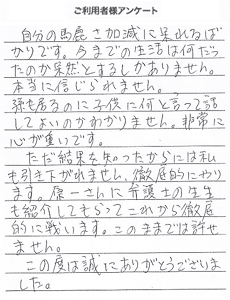 ご利用者様アンケート
自分の馬鹿さ加減に呆れるば
かりです。今までの生活は何だっ
たのか呆然とするしかありません。
本当に信じられません。
弥を居るのに子供に何と言って話
してよいのかわかりません。非常に
心が重いです。
ただ結果を知ったからには私
も引き下がれません、徹底的にやり
ます。原一さんに弁護士の先生
も紹介してもらってこれから徹底
的に戦います。このままでは許せ
ません。
この度は誠にありがとうございま
した。